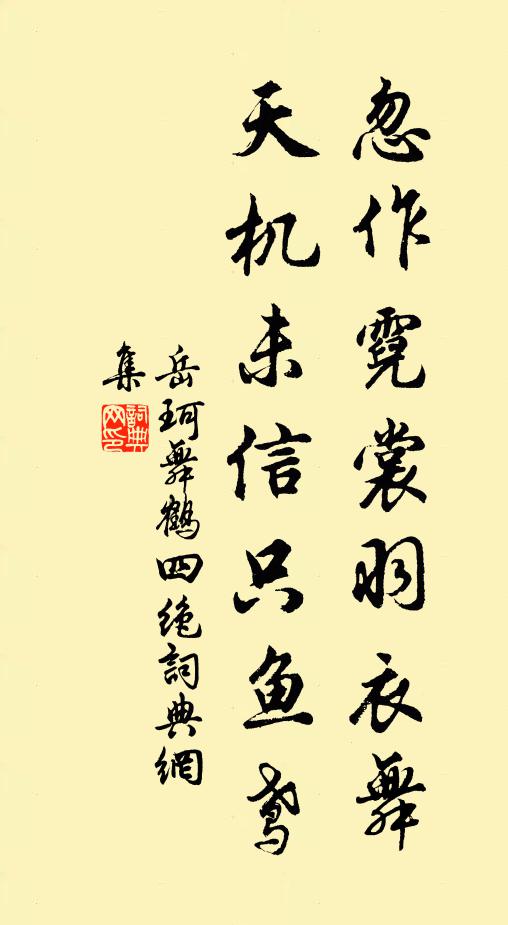 忽作霓裳羽衣舞
天机未信只鱼鸢
岳珂舞鶴四绝詞典網
集
詞典网印